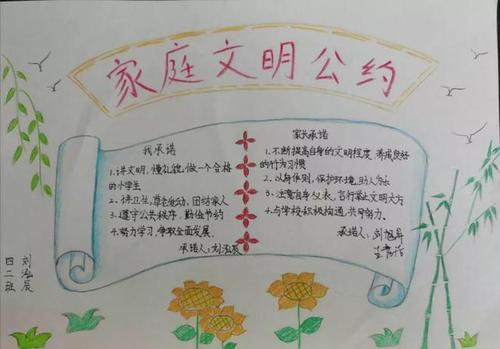 家庭文明公约
我承诺
1.讲文明,懂礼貌,做一个合格
的小学生
2.讲卫生,尊老爱幼,团结家人
3.遵守公共秩序,勤俭节约
4.努力学习,争取全面发展.
承诺人:刘泓辰
家长承诺
1.不断提高自身的文明程度,养成良好
的行为习惯
2.以身作则,保护环境,助人为乐
3.注意自身仪表,言行举止文明大方
4.与学校积极沟通,共同努力.
承诺人:刘
四二班
刘泓辰